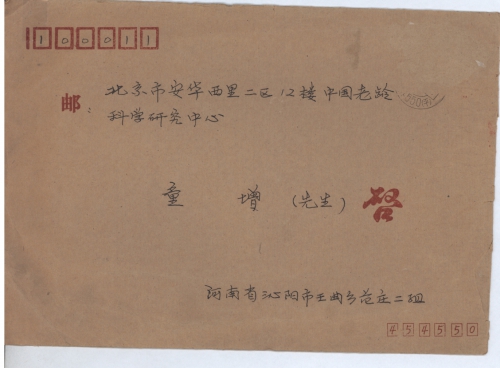 100011
邮：北京市安华西里二区12楼中国老龄
科学研究中心
童 增 (先生) 启
河南省沁阳市王曲乡范庄二组
454550